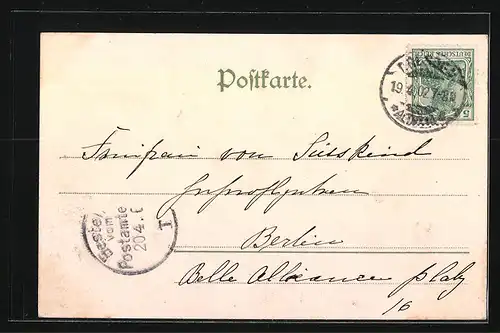 Postkarte.
DEUTSCHES REICH
5
19.4.02.7-8N
ALTSTADT
Freifrau von Süsskind
Berlin
Belle Alliance platz
16
Bestellt
vom
Postamte
20.4.
1